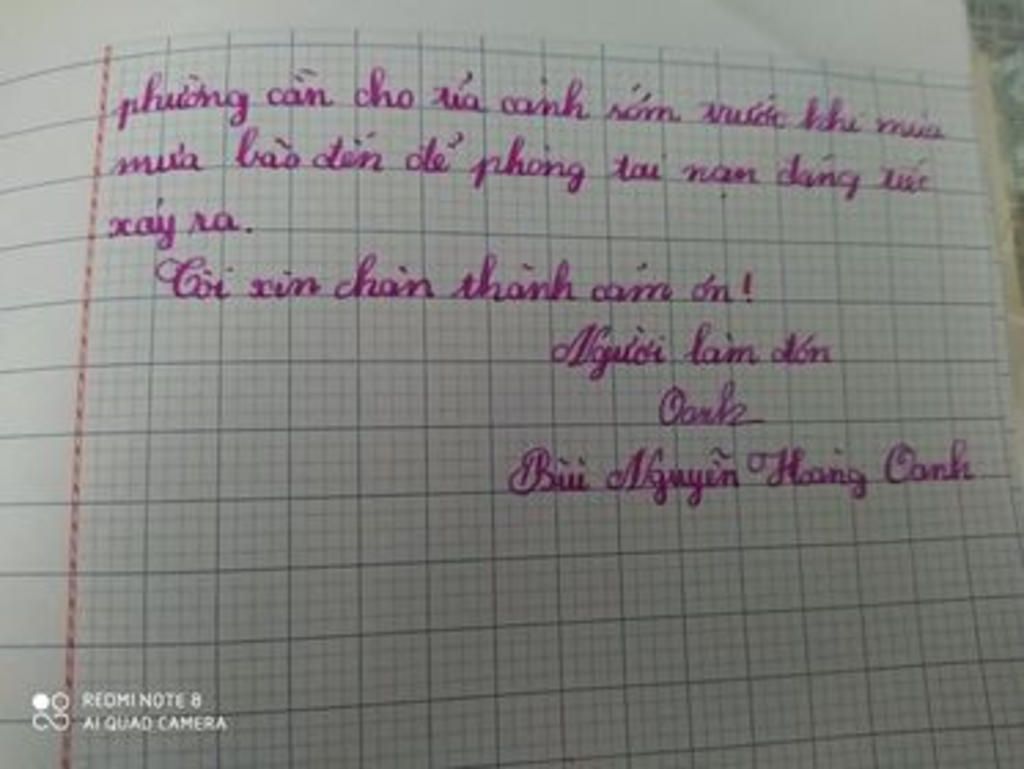 phường cần cho tỉa cành sớm trước khi mùa
mưa bão đến để phòng tai nạn đáng tiếc
xảy ra.
Tôi xin chân thành cảm ơn!
Người làm đơn
Oanh
Bùi Nguyễn Hoàng Oanh
REDMI NOTE 8
AI QUAD CAMERA